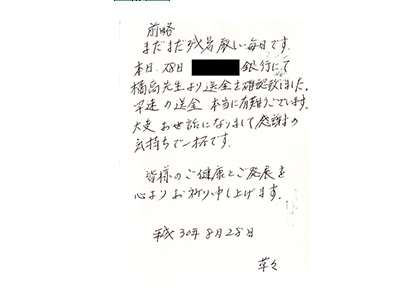 前略
まだまだ残暑厳しい毎日です。
本日、28日 銀行にて
橘高先生より送金を確認致しました。
早速の送金 本当に有難うございます。
大変お世話になりまして感謝の
気持ちで一杯です。
皆様のご健康とご発展を
心よりお祈り申し上げます。
平成30年8月28日
草々